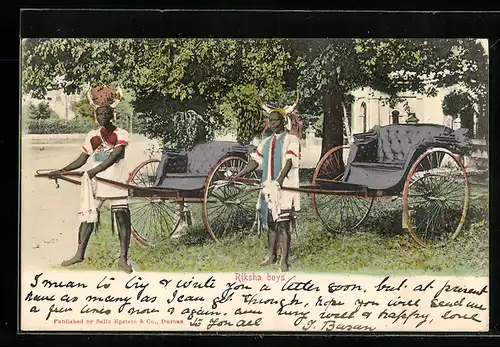 Riksha boys
I mean to try & write you a letter soon, but at present
have as many as I can get through, hope you will send me
a few lines now & again. am very well & happy, love
Published by Sallo Epstein & Co., Durban
to you all